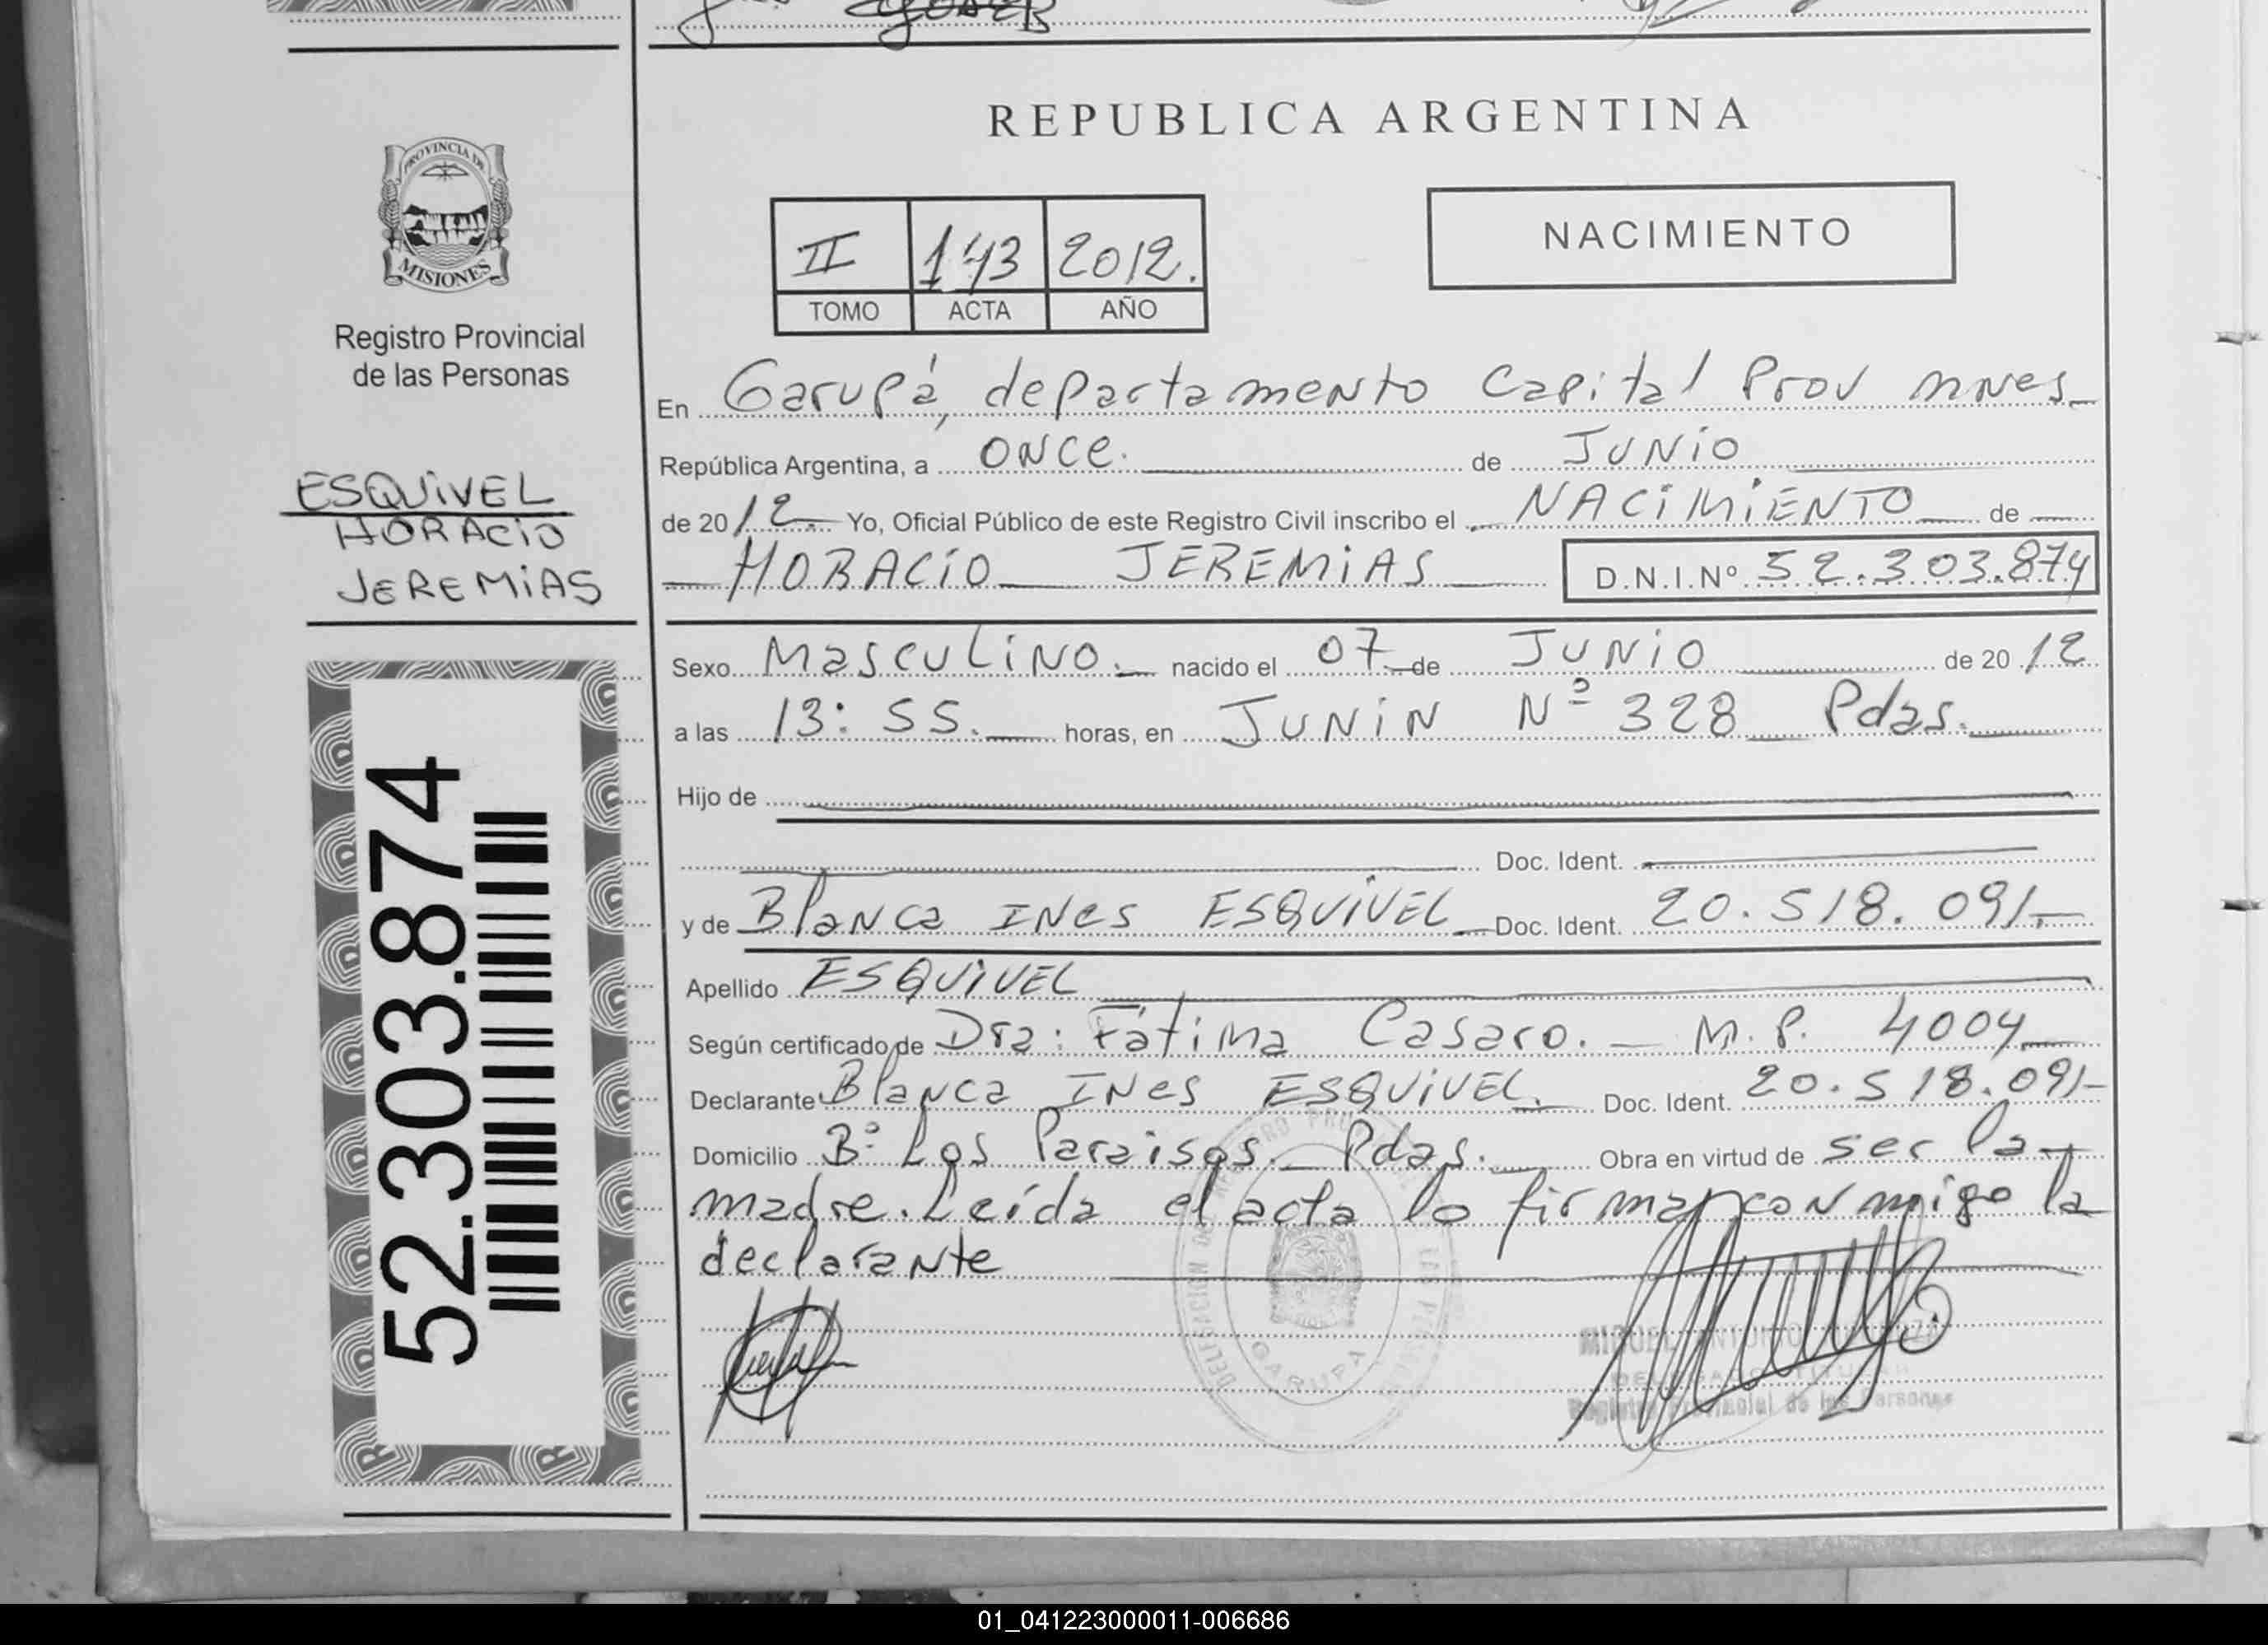 REPUBLICA ARGENTINA
PROVINCIA DE
MISIONES
Registro Provincial
de las Personas
ESQUIVEL
HORACIO
JEREMIAS
52.303.874
II 143 2012.
TOMO ACTA AÑO
NACIMIENTO
En Garupá, departamento Capital Prov mnes
República Argentina, a once. de JUNIO
de 2012. Yo, Oficial Público de este Registro Civil inscribo el NACIMIENTO de
HORACIO JEREMIAS D.N.I.Nº 52.303.874
Sexo Masculino. nacido el 07 de JUNIO de 2012
a las 13:55. horas, en JUNIN Nº 328 Pdas.
Hijo de
Doc. Ident.
y de Blanca INes ESQUIVEL Doc. Ident. 20.518.091
Apellido ESQUIVEL
Según certificado de Dra: Fátima Casaro. M.P. 4004
Declarante Blanca INes ESQUIVEL. Doc. Ident. 20.518.091
Domicilio Bº Los Paraisos. Pdas. Obra en virtud de ser la
madre. Leída el acta lo firma conmigo la
declarante
DELEGACION
GARUPA
MIGUEL
Registro Provincial de las Personas
01_041223000011-006686